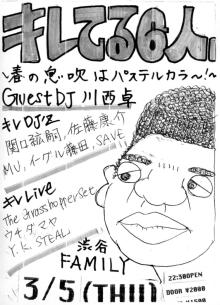 キレてる6人
〜春の息吹はパステルカラ〜!〜
Guest DJ 川西卓
キレDJ'z
関口紘嗣, 佐藤康介
MU, イーグル藤田, SAVE
キレLive
The Grasshopper Set
ウチダマヤ
Y.K. STEAL
渋谷
FAMILY
22:300PEN
DOOR ¥2000
3/5(THU)